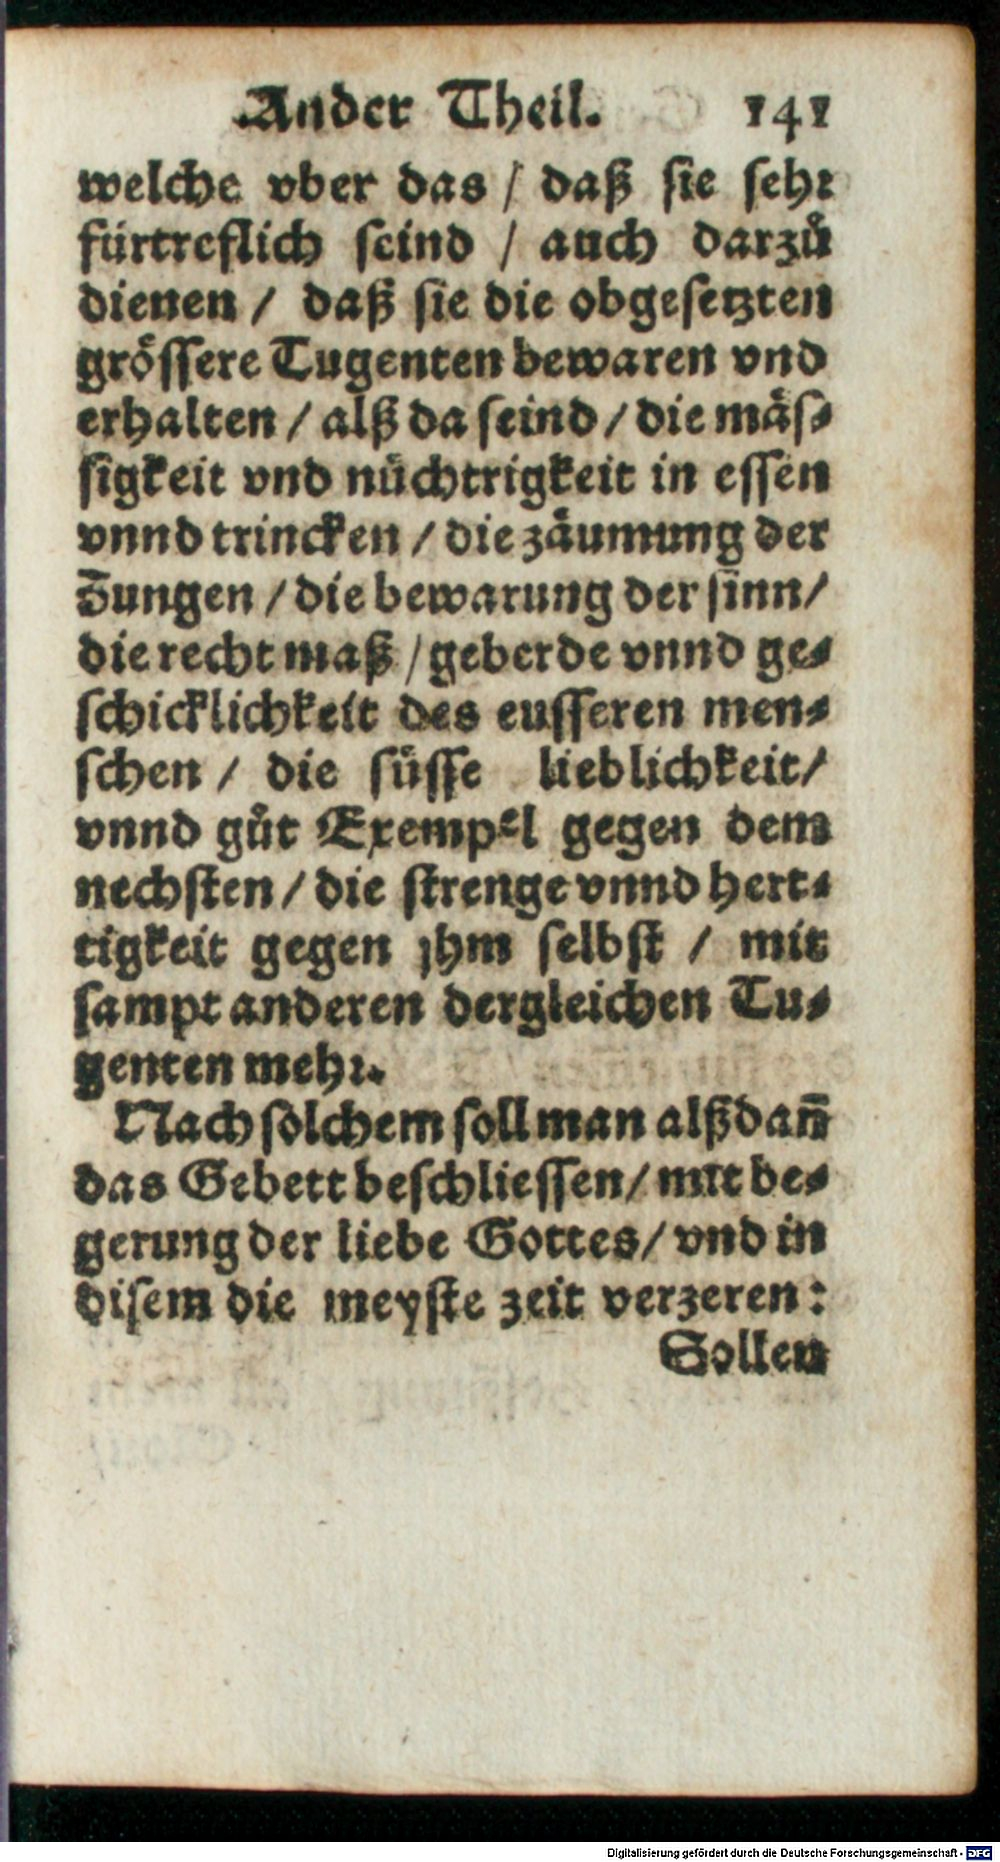 Ander Theil. 141
welche vber das / daß sie sehr
fürtreflich seind / auch darzuͦ
dienen / daß sie die obgesetzten
groͤssere Tugenten bewaren vnd
erhalten / alß da seind / die maͤs-
sigkeit vnd nuͤchtrigkeit in essen
vnnd trincken / die zaͤumung der
Zungen / die bewarung der sinn /
die recht maß / geberde vnnd ge-
schicklichkeit des eusseren men-
schen / die suͤsse lieblichkeit /
vnnd guͦt Exempel gegen dem
nechsten / die strenge vnnd hert-
tigkeit gegen jhm selbst / mit
sampt anderen dergleichen Tu-
genten mehr.
Nach solchem soll man alßdañ
das Gebett beschliessen / mit be-
gerung der liebe Gottes / vnd in
disem die meyste zeit verzeren:
Sollen
Digitalisierung gefördert durch die Deutsche Forschungsgemeinschaft - DFG